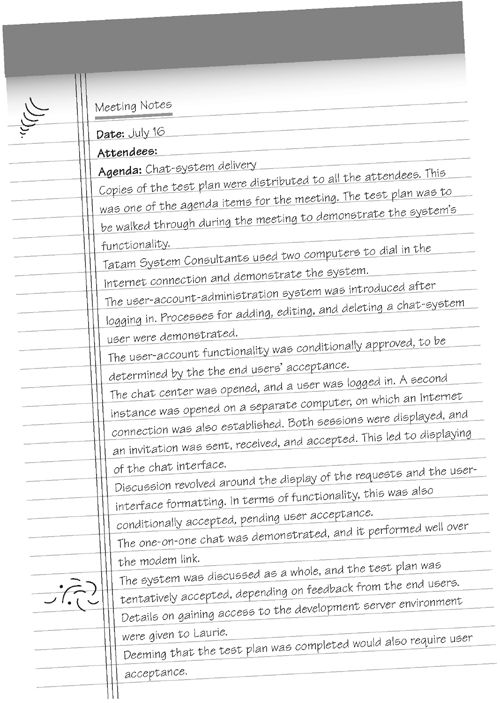 Meeting Notes
Date: July 16
Attendees:
Agenda: Chat-system delivery
Copies of the test plan were distributed to all the attendees. This
was one of the agenda items for the meeting. The test plan was to
be walked through during the meeting to demonstrate the system's
functionality.
Tatam System Consultants used two computers to dial in the
Internet connection and demonstrate the system.
The user-account-administration system was introduced after
logging in. Processes for adding, editing, and deleting a chat-system
user were demonstrated.
The user-account functionality was conditionally approved, to be
determined by the the end users' acceptance.
The chat center was opened, and a user was logged in. A second
instance was opened on a separate computer, on which an Internet
connection was also established. Both sessions were displayed, and
an invitation was sent, received, and accepted. This led to displaying
of the chat interface.
Discussion revolved around the display of the requests and the user-
interface formatting. In terms of functionality, this was also
conditionally accepted, pending user acceptance.
The one-on-one chat was demonstrated, and it performed well over
the modem link.
The system was discussed as a whole, and the test plan was
tentatively accepted, depending on feedback from the end users.
Details on gaining access to the development server environment
were given to Laurie.
Deeming that the test plan was completed would also require user
acceptance.